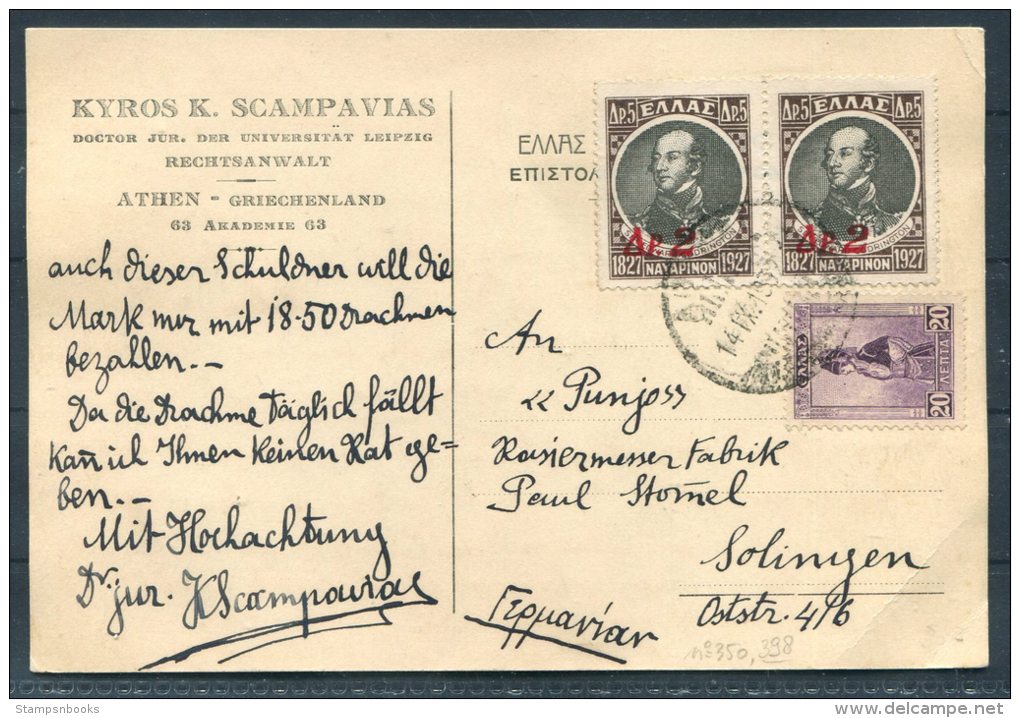 KYROS K. SCAMPAVIAS
DOCTOR JUR. DER UNIVERSITÄT LEIPZIG
RECHTSANWALT
ATHEN - GRIECHENLAND
63 AKADEMIE 63
auch dieser Schuldner will die
Mark nur mit 18.50 Drachmen
bezahlen.-
Da die Drachme täglich fällt
kan̄ ich Ihnen keinen Rat ge=
ben.-
Mit Hochachtung
Dr. jur. KScampavias
ΕΛΛΑΣ
ΕΠΙΣΤΟΛ
Δρ.5 ΕΛΛΑΣ Δρ.5
Δρ. 2
1827 ΝΑΥΑΡΙΝΟΝ 1927
Δρ.5 ΕΛΛΑΣ Δρ.5
Δρ. 2
CODRINGTON
1827 ΝΑΥΑΡΙΝΟΝ 1927
14 IX.
20 ΕΛΛΑΣ
20 ΛΕΠΤΑ 20
An
« Punjo »
Rasiermesser Fabrik
Paul Stom̄el
Solingen
Oststr. 4/6
Γερμανίαν
nº350, 398
Stampsnbooks
delcampe.net